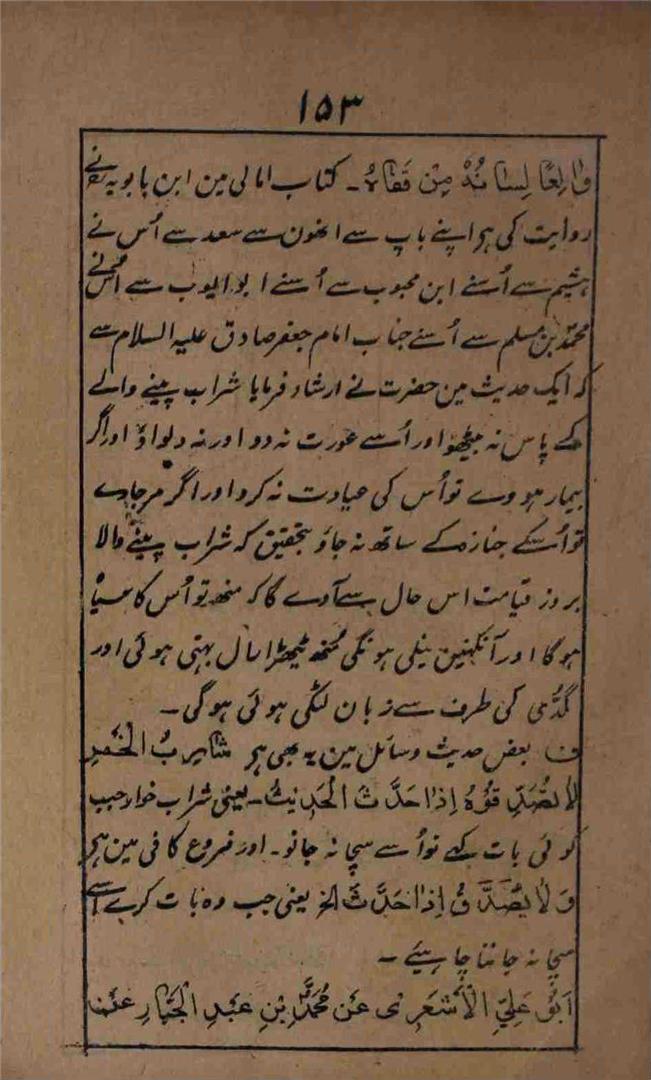 ۱۵۳
وَالِعًا لِسَانُهٗ مِنْ قَفَاہُ ـ کتاب امالی مین ابن بابویہ نے
روایت کی ہر اپنے باپ سے اونھون سے سعد سے اُس نے
ہشیم سے اُسنے ابن محبوب سے اُسنے ابو ایوب سے اُسنے
محمدؐ بن مسلم سے اُسنے جناب امام جعفر صادق علیہ السلام سے
کہ ایک حدیث مین حضرت نے ارشاد فرمایا شراب پینے والے
کے پاس نہ بیٹھو اور اُسے عورت نہ دو اور نہ دلواؤ اور اگر
بیمار ہووے تو اُس کی عیادت نہ کرو اور اگر مرجاوے
تو اُسکے جنازہ کے ساتھ نہ جاؤ بتحقیق کہ شراب پینے والا
بروز قیامت اس حال سے آوے گا کہ منھ تو اُس کا سیاہ
ہوگا اور آنکھین نیلی ہونگی مُنھ ٹیڑھا رال بہتی ہوئی اور
گدّی کی طرف سے زبان لٹکی ہوئی ہوگی ـ
ف بعض حدیث وسائل مین یہ بھی ہر شَارِبُ الْخَمْرِ
لَا تُصَدِّقُوْہُ اِذَا حَدَّثَ الْحَدِیْثَ ـ یعنی شراب خوار جب
کوئی بات کہے تو اُسے سچا نہ جانو ـ اور فروع کافی مین ہر
وَلَا یُصَدَّقُ اِذَا حَدَّثَ الخ یعنی جب وہ بات کرے اُسے
سچا نہ جاننا چاہیئے ـ
اَبُوْ عَلِیِّ الْاَشْعَرِیْ عَنْ مُحَمَّدِ بْنِ عَبْدِ الْجَبَّارِ عَنْ